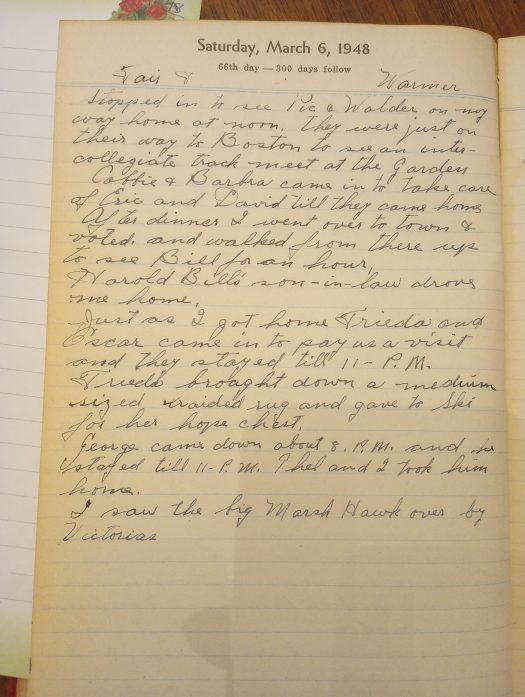 Saturday, March 6, 1948
66th day — 300 days follow
Fair & Warmer
Stopped in to see Pie & Walder on my
way home at noon. They were just on
their way to Boston to see an inter-
collegiate track meet at the Garden
Cobbie & Barbra came in to take care
of Eric and David till they came home
After dinner I went over to town &
voted, and walked from there up
to see Bill for an hour,
Harold Bill's son-in-law drove
me home.
Just as I got home Frieda and
Oscar came in to pay us a visit
and they stayed till 11- P.M.
Frieda brought down a medium
sized braided rug and gave to Ski
for her hope chest.
George came down about 8. P.M. and he
stayed till 11- P.M. Thel and I took him
home.
I saw the big Marsh Hawk over by
Victorias